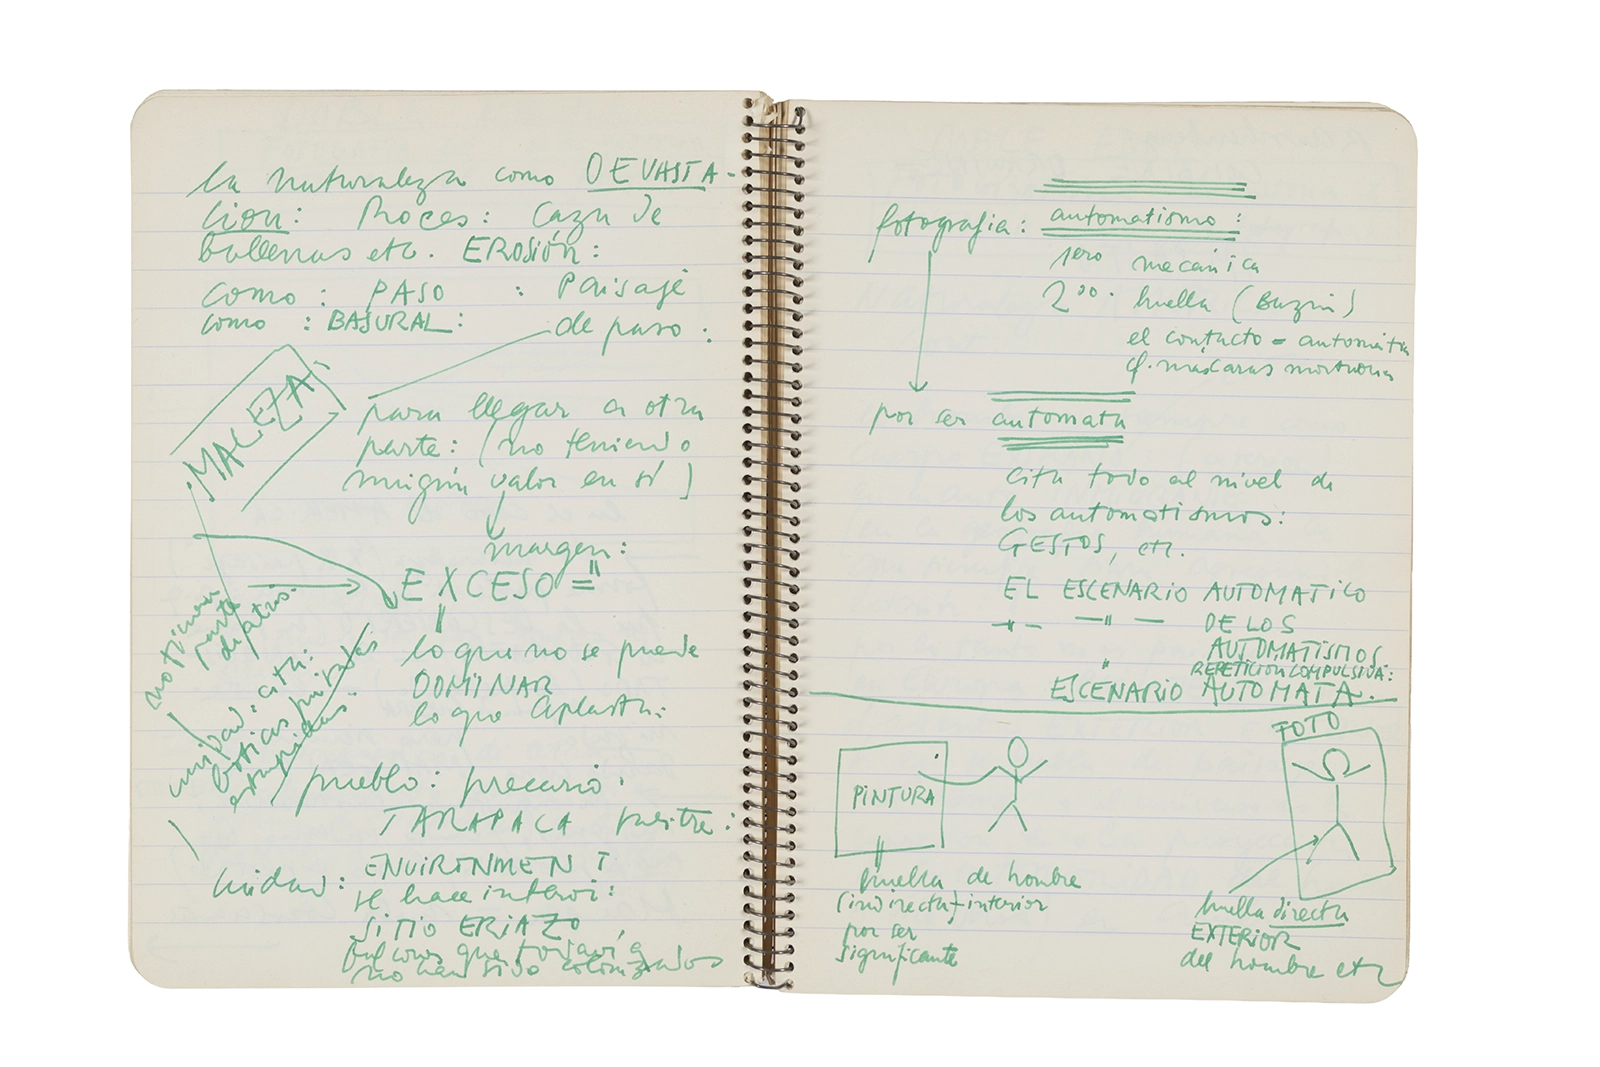 la naturaleza como DEVASTA-
cion: Proces: Caza de
ballenas etc. EROSIÓN:
como: PASO : Paisaje
como: BASURAL:
de paso:
MALEZA
para llegar a otra
parte: (no teniendo
ningún valor en sí)
margen:
EXCESO =
lo que no se puede
DOMINAR
lo que aplasta:
parte
de atrás.
cita:
boticas pintadas
estampidas
pueblo: precario:
TARAPACA
ciudad: ENVIRONMENT
se hace interior:
SITIO ERIAZO,
balcones que todavía
no han sido colonizados
fotografia: automatismo:
1ero mecánica
2do. huella (Bazin)
el contacto = automática
cf. máscaras mortuoria
por ser automata
cita todo al nivel de
los automatismos:
GESTOS, etc.
EL ESCENARIO AUTOMATICO
—"— —"— DE LOS
AUTOMATISMOS
REPETICION COMPULSIVA:
" ESCENARIO AUTOMATA.
FOTO
PINTURA
huella de hombre
(indirecta)-interior
por ser
significante
huella directa
EXTERIOR
del hombre etc